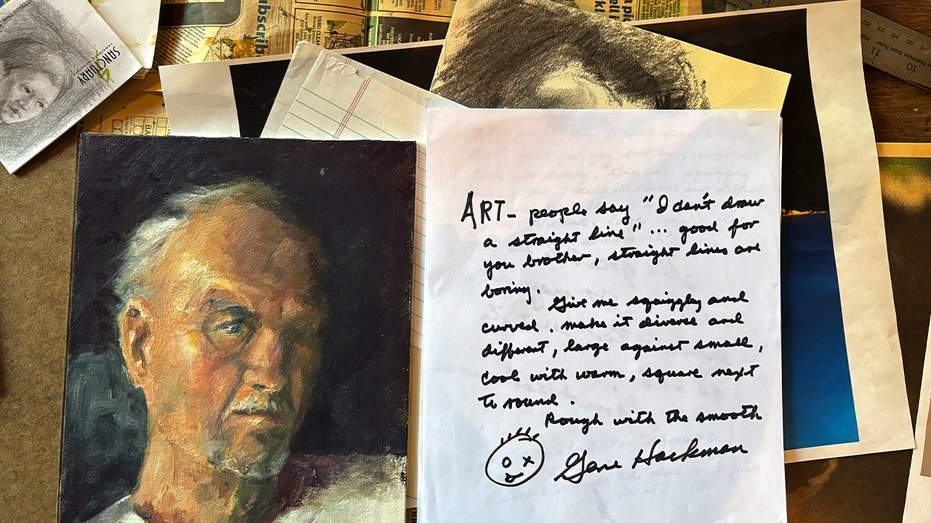 SANCTUARY
ART - people say "I can't draw
a straight line"... good for
you brother, straight lines are
boring.
Give me squiggly and
curved. make it diverse and
different, large against small,
cool with warm, square next
to round.
Rough with the smooth
Gene Hackman